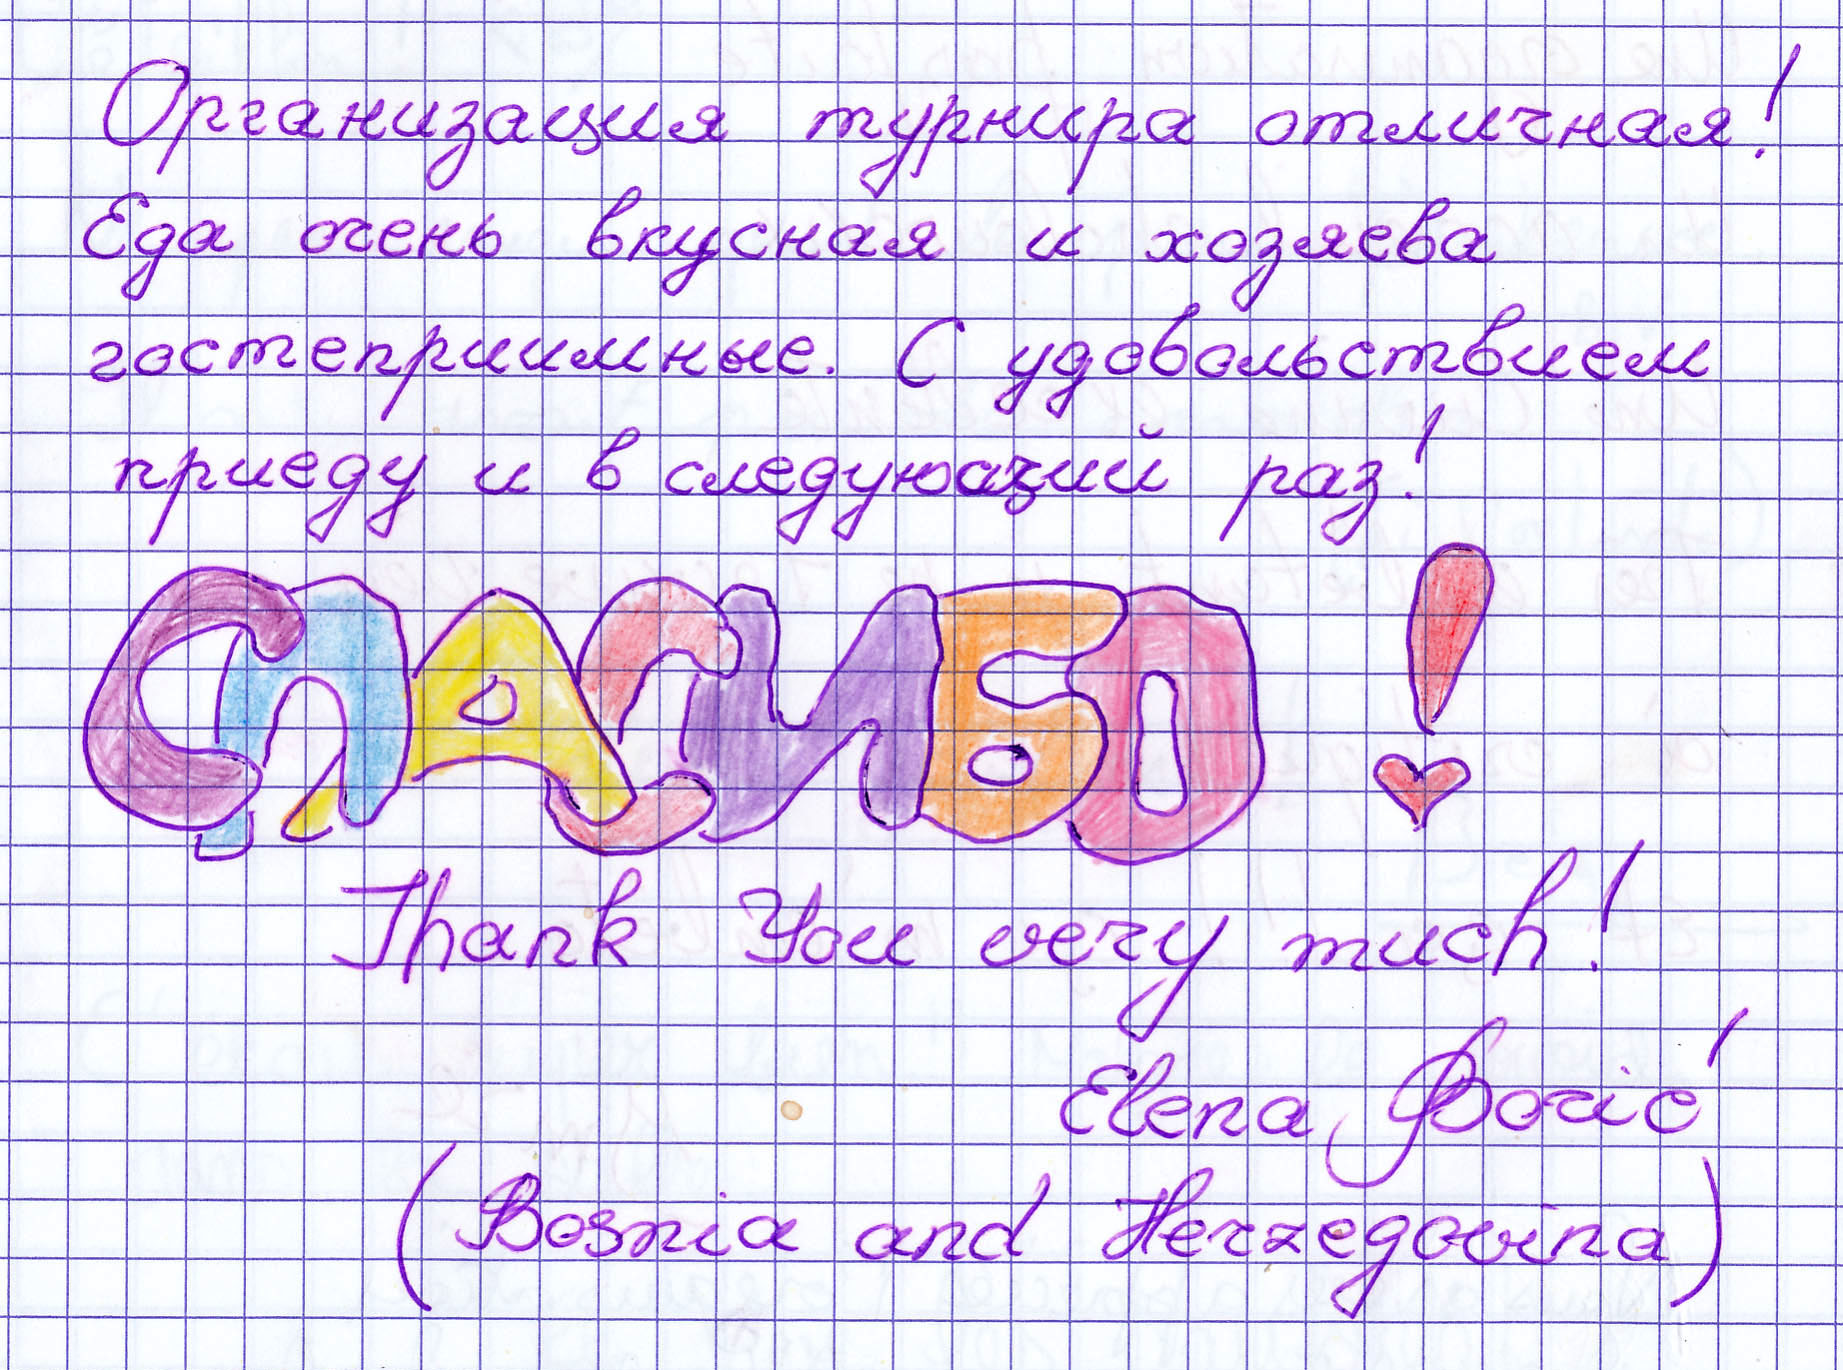 Организация турнира отличная!
Еда очень вкусная и хозяева
гостеприимные. С удовольствием
приеду и в следующий раз!
СПАСИБО!
Thank You very much!
Elena Borić
(Bosnia and Herzegovina)